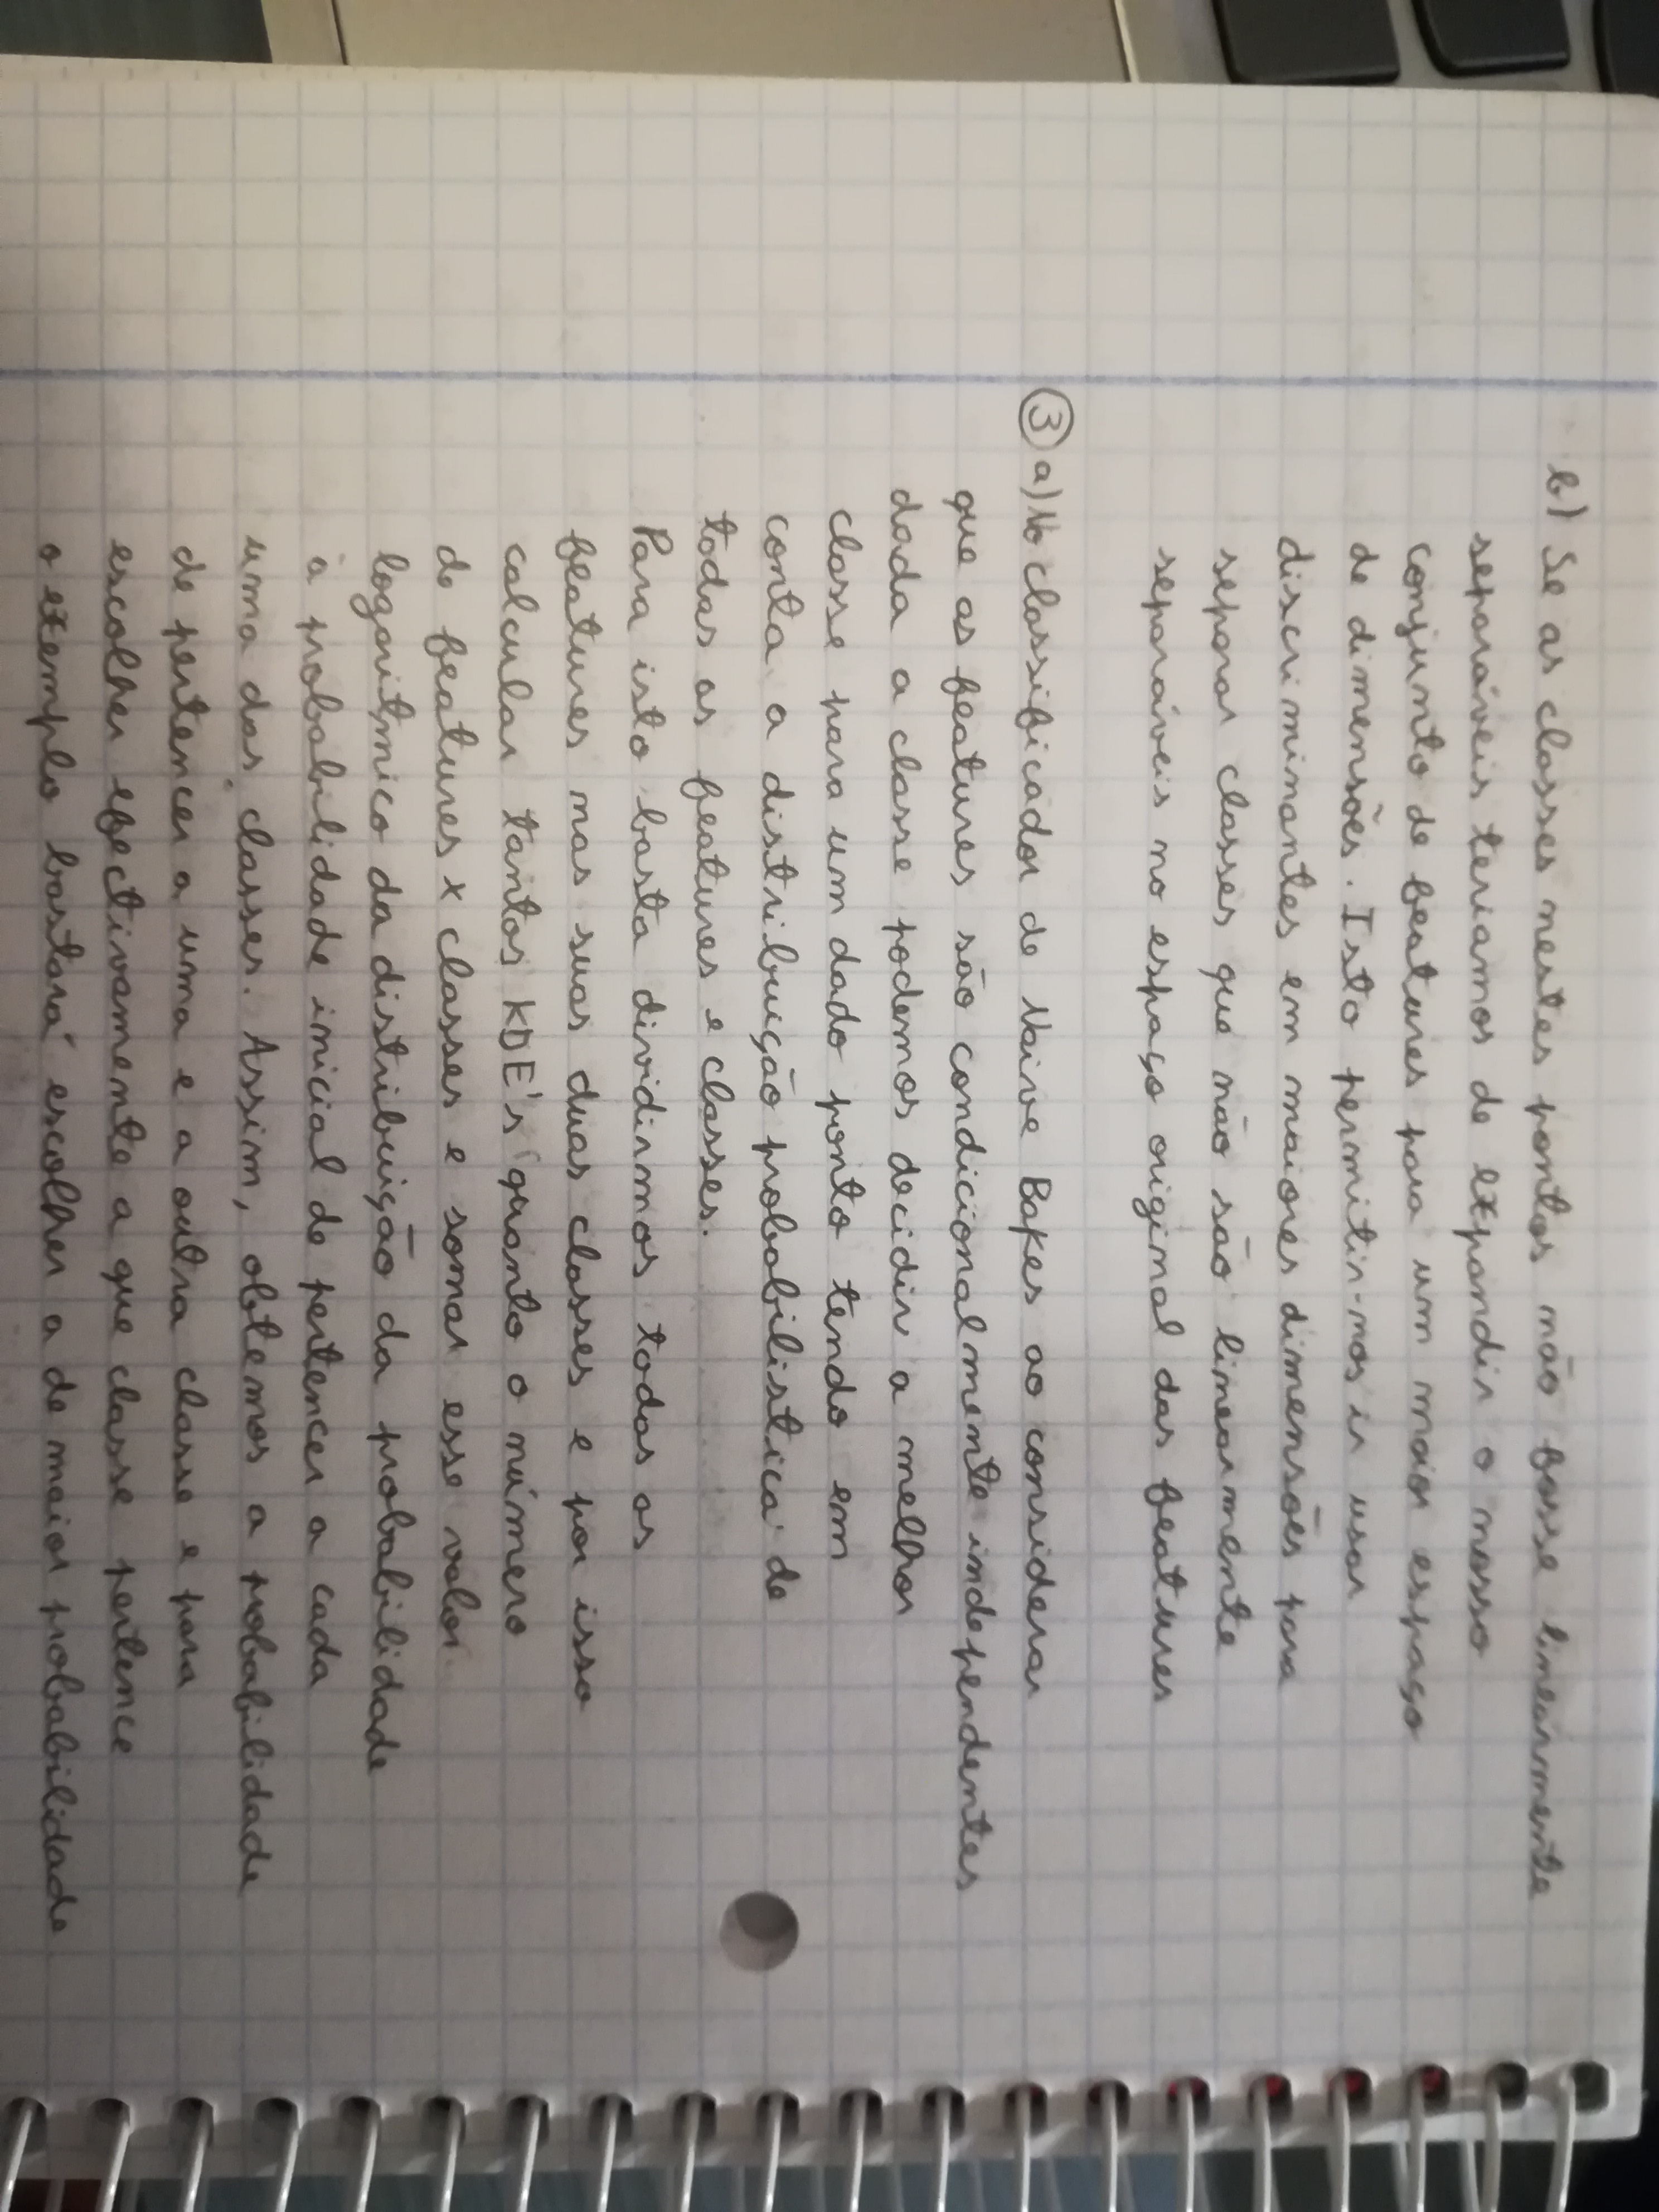 b) Se as classes nestes pontos não fosse linearmente
separáveis teriamos de expandir o nosso
conjunto de features para um maior espaço
de dimensões. Isto permitir-nos ir usar
discriminantes em maiores dimensões para
separar classes que não são linearmente
separáveis no espaço original das features
3 a) No classificador de Naive Bakes ao considerar
que as features são condicionalmente independentes
dada a classe podemos decidir a melhor
classe para um dado ponto tendo em
conta a distribuição probabilistica de
todas as features e classes.
Para isto basta dividirmos todas as
features nas suas duas classes e por isso
calcular tantos KDE's quanto o número
de features x classes e somar esse valor
logaritmico da distribuição da probabilidade
à probabilidade inicial de pertencer a cada
uma das classes. Assim, obtemos a probabilidade
de pertencer a uma e a outra classe e para
escolher efectivamente a que classe pertence
o exemplo bastará escolher a de maior probabilidade